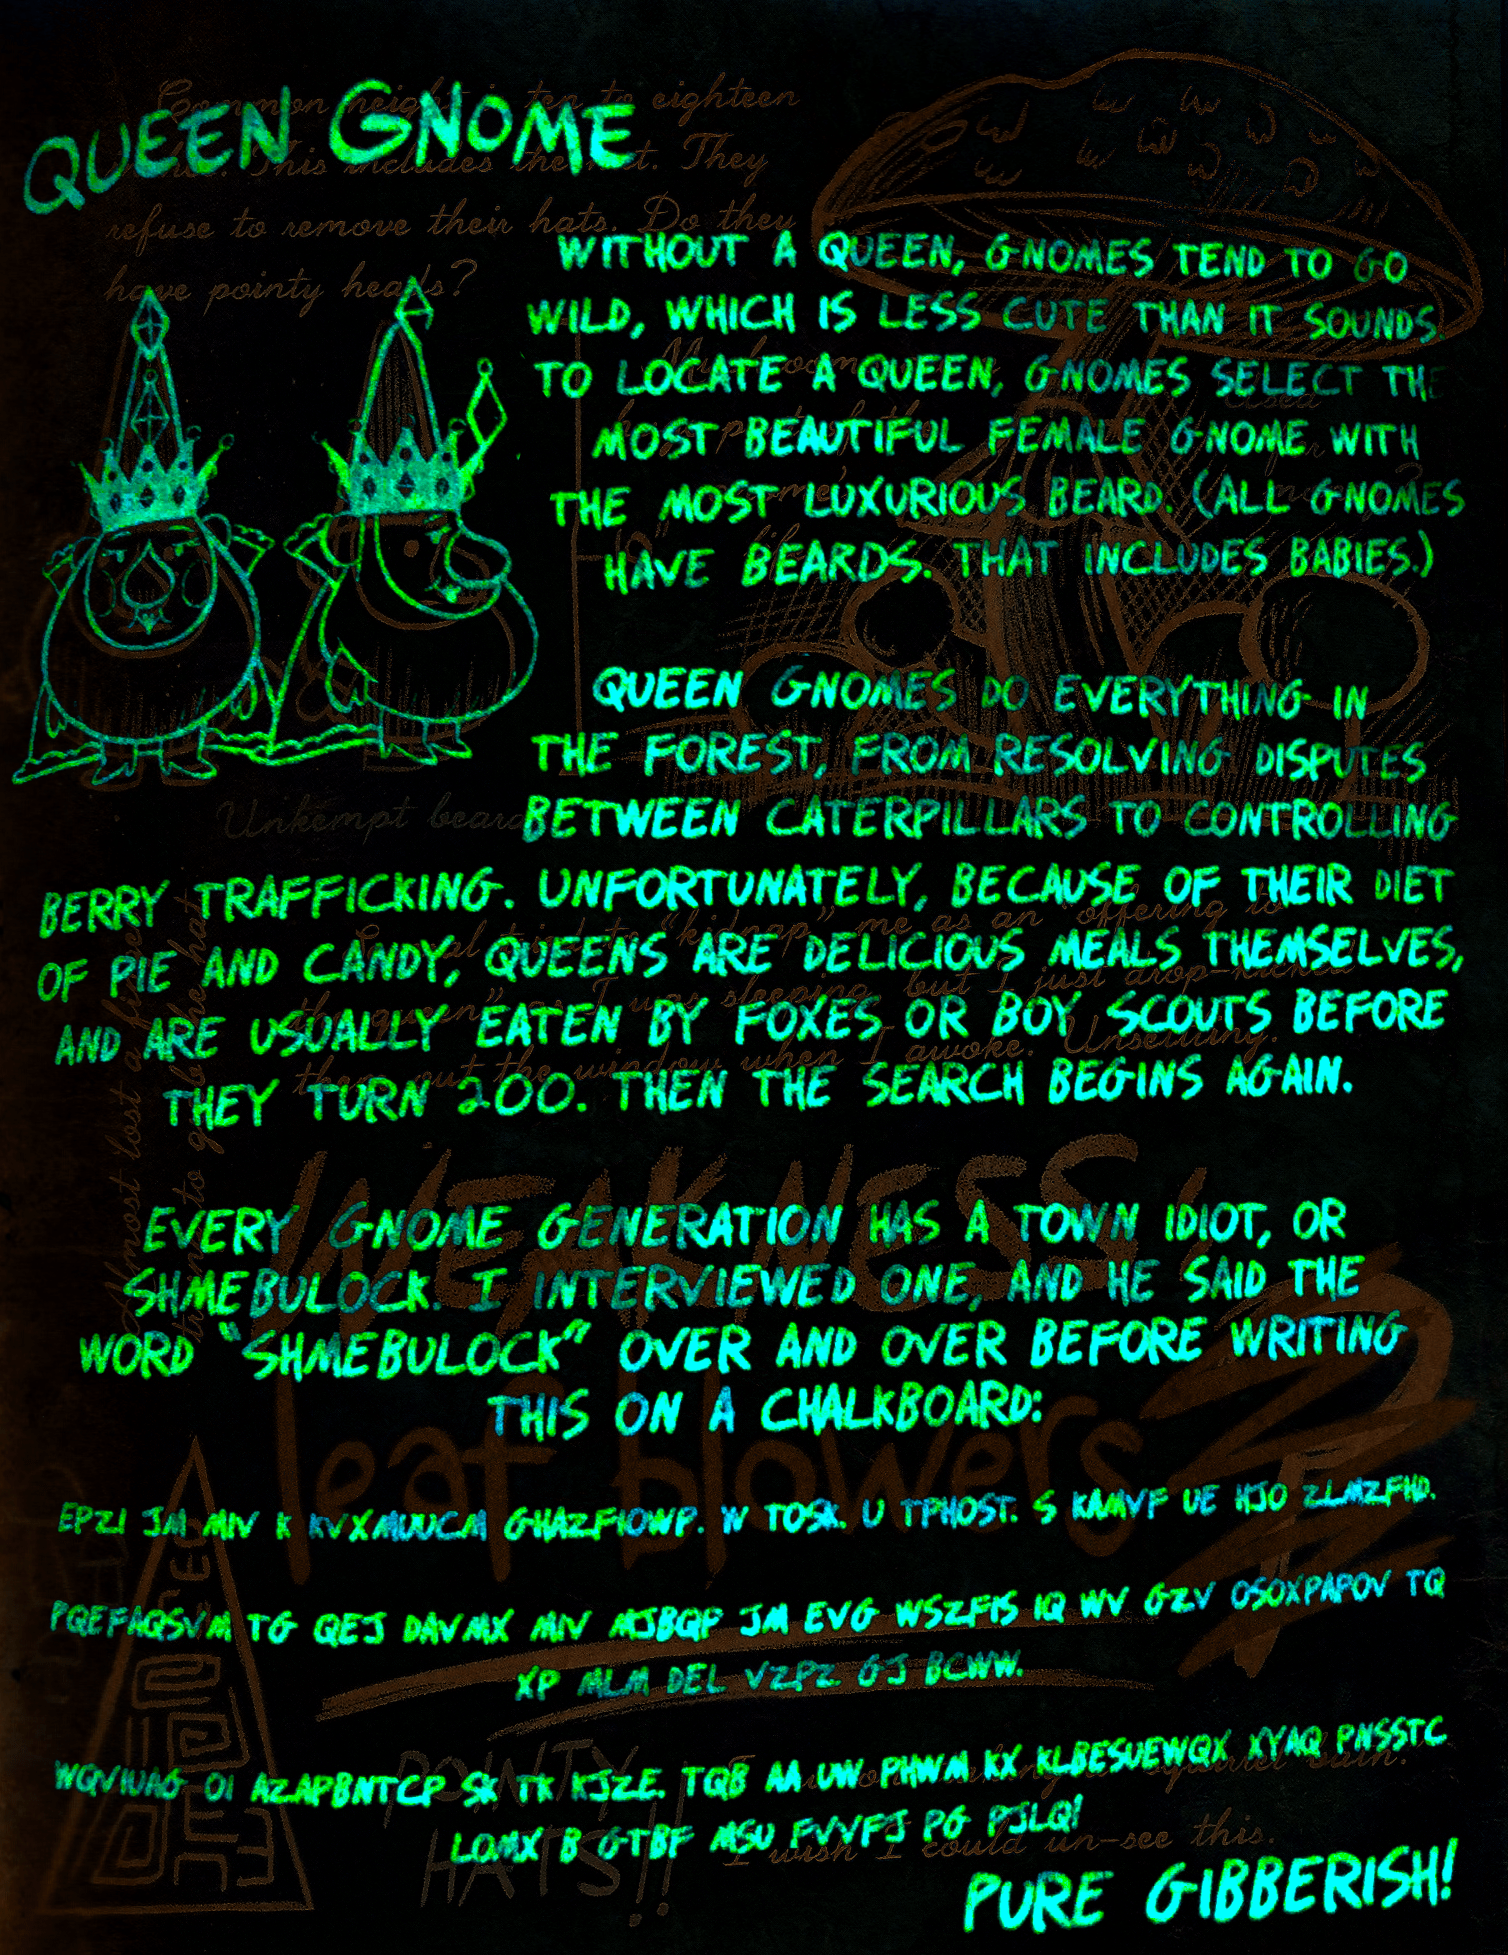 Common height is ten to eighteen
QUEEN GNOME
This includes the hat. They
refuse to remove their hats. Do they
have pointy heads?
WITHOUT A QUEEN, GNOMES TEND TO GO
WILD, WHICH IS LESS CUTE THAN IT SOUNDS.
TO LOCATE A QUEEN, GNOMES SELECT THE
MOST BEAUTIFUL FEMALE GNOME WITH
THE MOST LUXURIOUS BEARD. (ALL GNOMES
HAVE BEARDS. THAT INCLUDES BABIES.)
QUEEN GNOMES DO EVERYTHING IN
THE FOREST, FROM RESOLVING DISPUTES
Unkempt beard
BETWEEN CATERPILLARS TO CONTROLLING
BERRY TRAFFICKING. UNFORTUNATELY, BECAUSE OF THEIR DIET
OF PIE AND CANDY, QUEENS ARE DELICIOUS MEALS THEMSELVES,
AND ARE USUALLY EATEN BY FOXES OR BOY SCOUTS BEFORE
THEY TURN 200. THEN THE SEARCH BEGINS AGAIN.
tried to "kidnap" me as an offering to
"queen" as I was sleeping, but I just drop-kicked
them out the window when I awoke. Unsettling.
Almost lost a finger
trying to grab the hat
WEAKNESS:
EVERY GNOME GENERATION HAS A TOWN IDIOT, OR
SHMEBULOCK. I INTERVIEWED ONE, AND HE SAID THE
WORD "SHMEBULOCK" OVER AND OVER BEFORE WRITING
THIS ON A CHALKBOARD:
leaf blowers
EPZI JM MIV K KVXMUUCM GHAZFIOWP. W TOSK. U TPHOST. S KAMVF UE HJO ZLMZFHD.
PQEFAQSVM TG QEJ DAVMX MIV MJBQP JM EVG WSZFIS IQ WV GZV OSOXPAPOV TQ
XP MLM DEL VZPZ GJ BCWW.
WQVIUAG OI AZAPBNTCP SK TK KJZE. TQB AA UW PHWM KX KLBESUEWQX XYAQ PNSSTC
LOMX B GTBF MSU FVVFJ PG PJLQ!
POINTY
HATS!!
I wish I could un-see this.
PURE GIBBERISH!